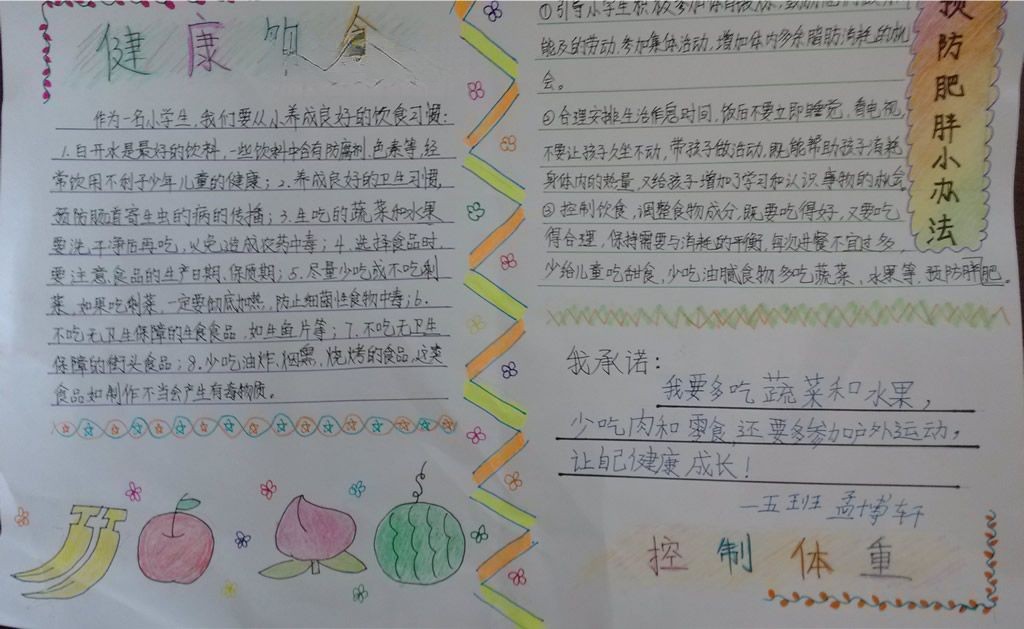 健康饮食
作为一名小学生,我们要从小养成良好的饮食习惯:
1.白开水是最好的饮料,一些饮料中含有防腐剂,色素等,经
常饮用不利于少年儿童的健康;2.养成良好的卫生习惯,
预防肠道寄生虫的病的传播;3.生吃的蔬菜和水果
要洗干净后再吃,以免造成农药中毒;4.选择食品时,
要注意食品的生产日期、保质期;5.尽量少吃或不吃剩
菜,如果吃剩菜,一定要彻底加热,防止细菌性食物中毒;6.
不吃无卫生保障的生食食品,如生鱼片等;7.不吃无卫生
保障的街头食品;8.少吃油炸、烟熏、烧烤的食品,这类
食品如制作不当会产生有毒物质。
预防肥胖小办法
①引导小学生积极参加体育
能及的劳动,参加集体活动,增加体内多余脂肪消耗的机
会。
②合理安排生活作息时间,饭后不要立即睡觉,看电视,
不要让孩子久坐不动,带孩子做活动,既能帮助孩子消耗
身体内的热量,又给孩子增加了学习和认识事物的机会。
③控制饮食,调整食物成分,既要吃得好,又要吃
得合理,保持需要与消耗的平衡,每次进餐不宜过多,
少给儿童吃甜食,少吃油腻食物多吃蔬菜、水果等,预防胖肥。
我承诺:
我要多吃蔬菜和水果,
少吃肉和零食,还要多参加户外运动,
让自己健康成长!
一五班 孟博轩
控制体重